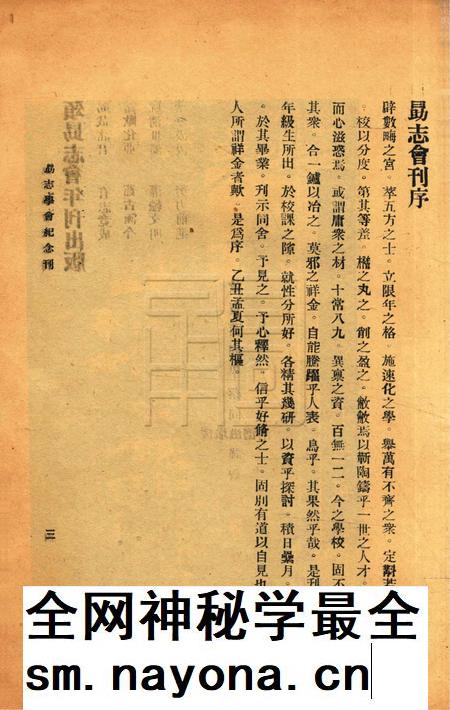 勗志會刊序
辟數畮之宮。萃五方之士。立限年之格。施速化之學。舉萬有不齊之衆。定斠若
。校以分度。第其等差。橢之丸之。削之盈之。敝敝焉以蘄陶鑄乎一世之人才。
而心滋惑焉。或謂庸衆之材。十常八九。異禀之資。百無一二。今之學校。固不
其衆。合一鑪以冶之。莫邪之祥金。自能騰躍乎人表。烏乎。其果然乎哉。是刋
年級生所出。於校課之隙。就性分所好。各精其幾研。以資乎探討。積日纍月。
。於其畢業。刋示同舍。予見之。予心釋然。信乎好脩之士。固別有道以自見也
人所謂祥金者歟。是爲序。乙丑孟夏何其樞
勗志學會紀念刊
三
全网神秘学最全
sm.nayona.cn